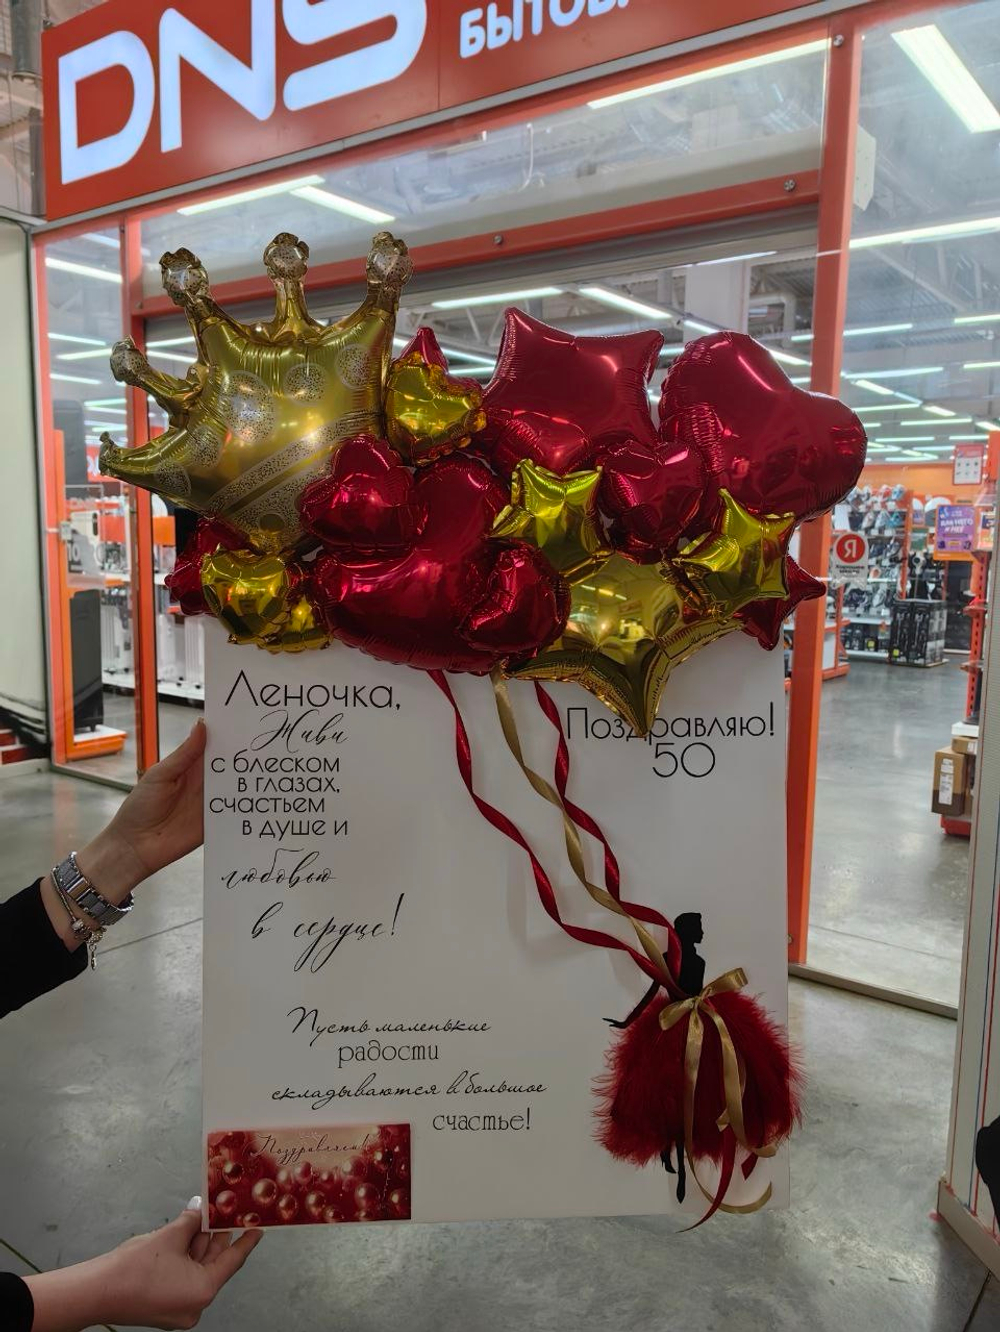 DNS
БЫТОВ
Леночка,
Живи
с блеском
в глазах,
счастьем
в душе и
любовью
в сердце!
Поздравляю!
50
Пусть маленькие
радости
складываются в большое
счастье!
Я